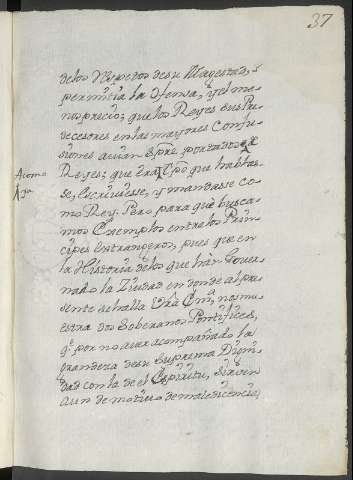 37
de los Respetos de su Magestad, i
permitia la ofensa, y el me-
nosprecio; que los Reyes sus Pre-
decesores en las mayores Confu-
siones avian spre portadose
Reyes; que era tpo que hablas-
se, escriviesse, y mandasse co-
mo Rey. Pero para què busca-
mos exemplos entre los Prin-
cipes estrangeros, pues que en
la Historia de los que hàn Gover-
nado la Ziudad en donde al pre-
sente se halla Vra Emª, nos mu-
estra dos Soberanos Pontifices,
qe por no aver acompañado la
grandeza de su Suprema Digni-
dad con la de el Espiritu, sirven
aun de motivo de maledicencia,
A como